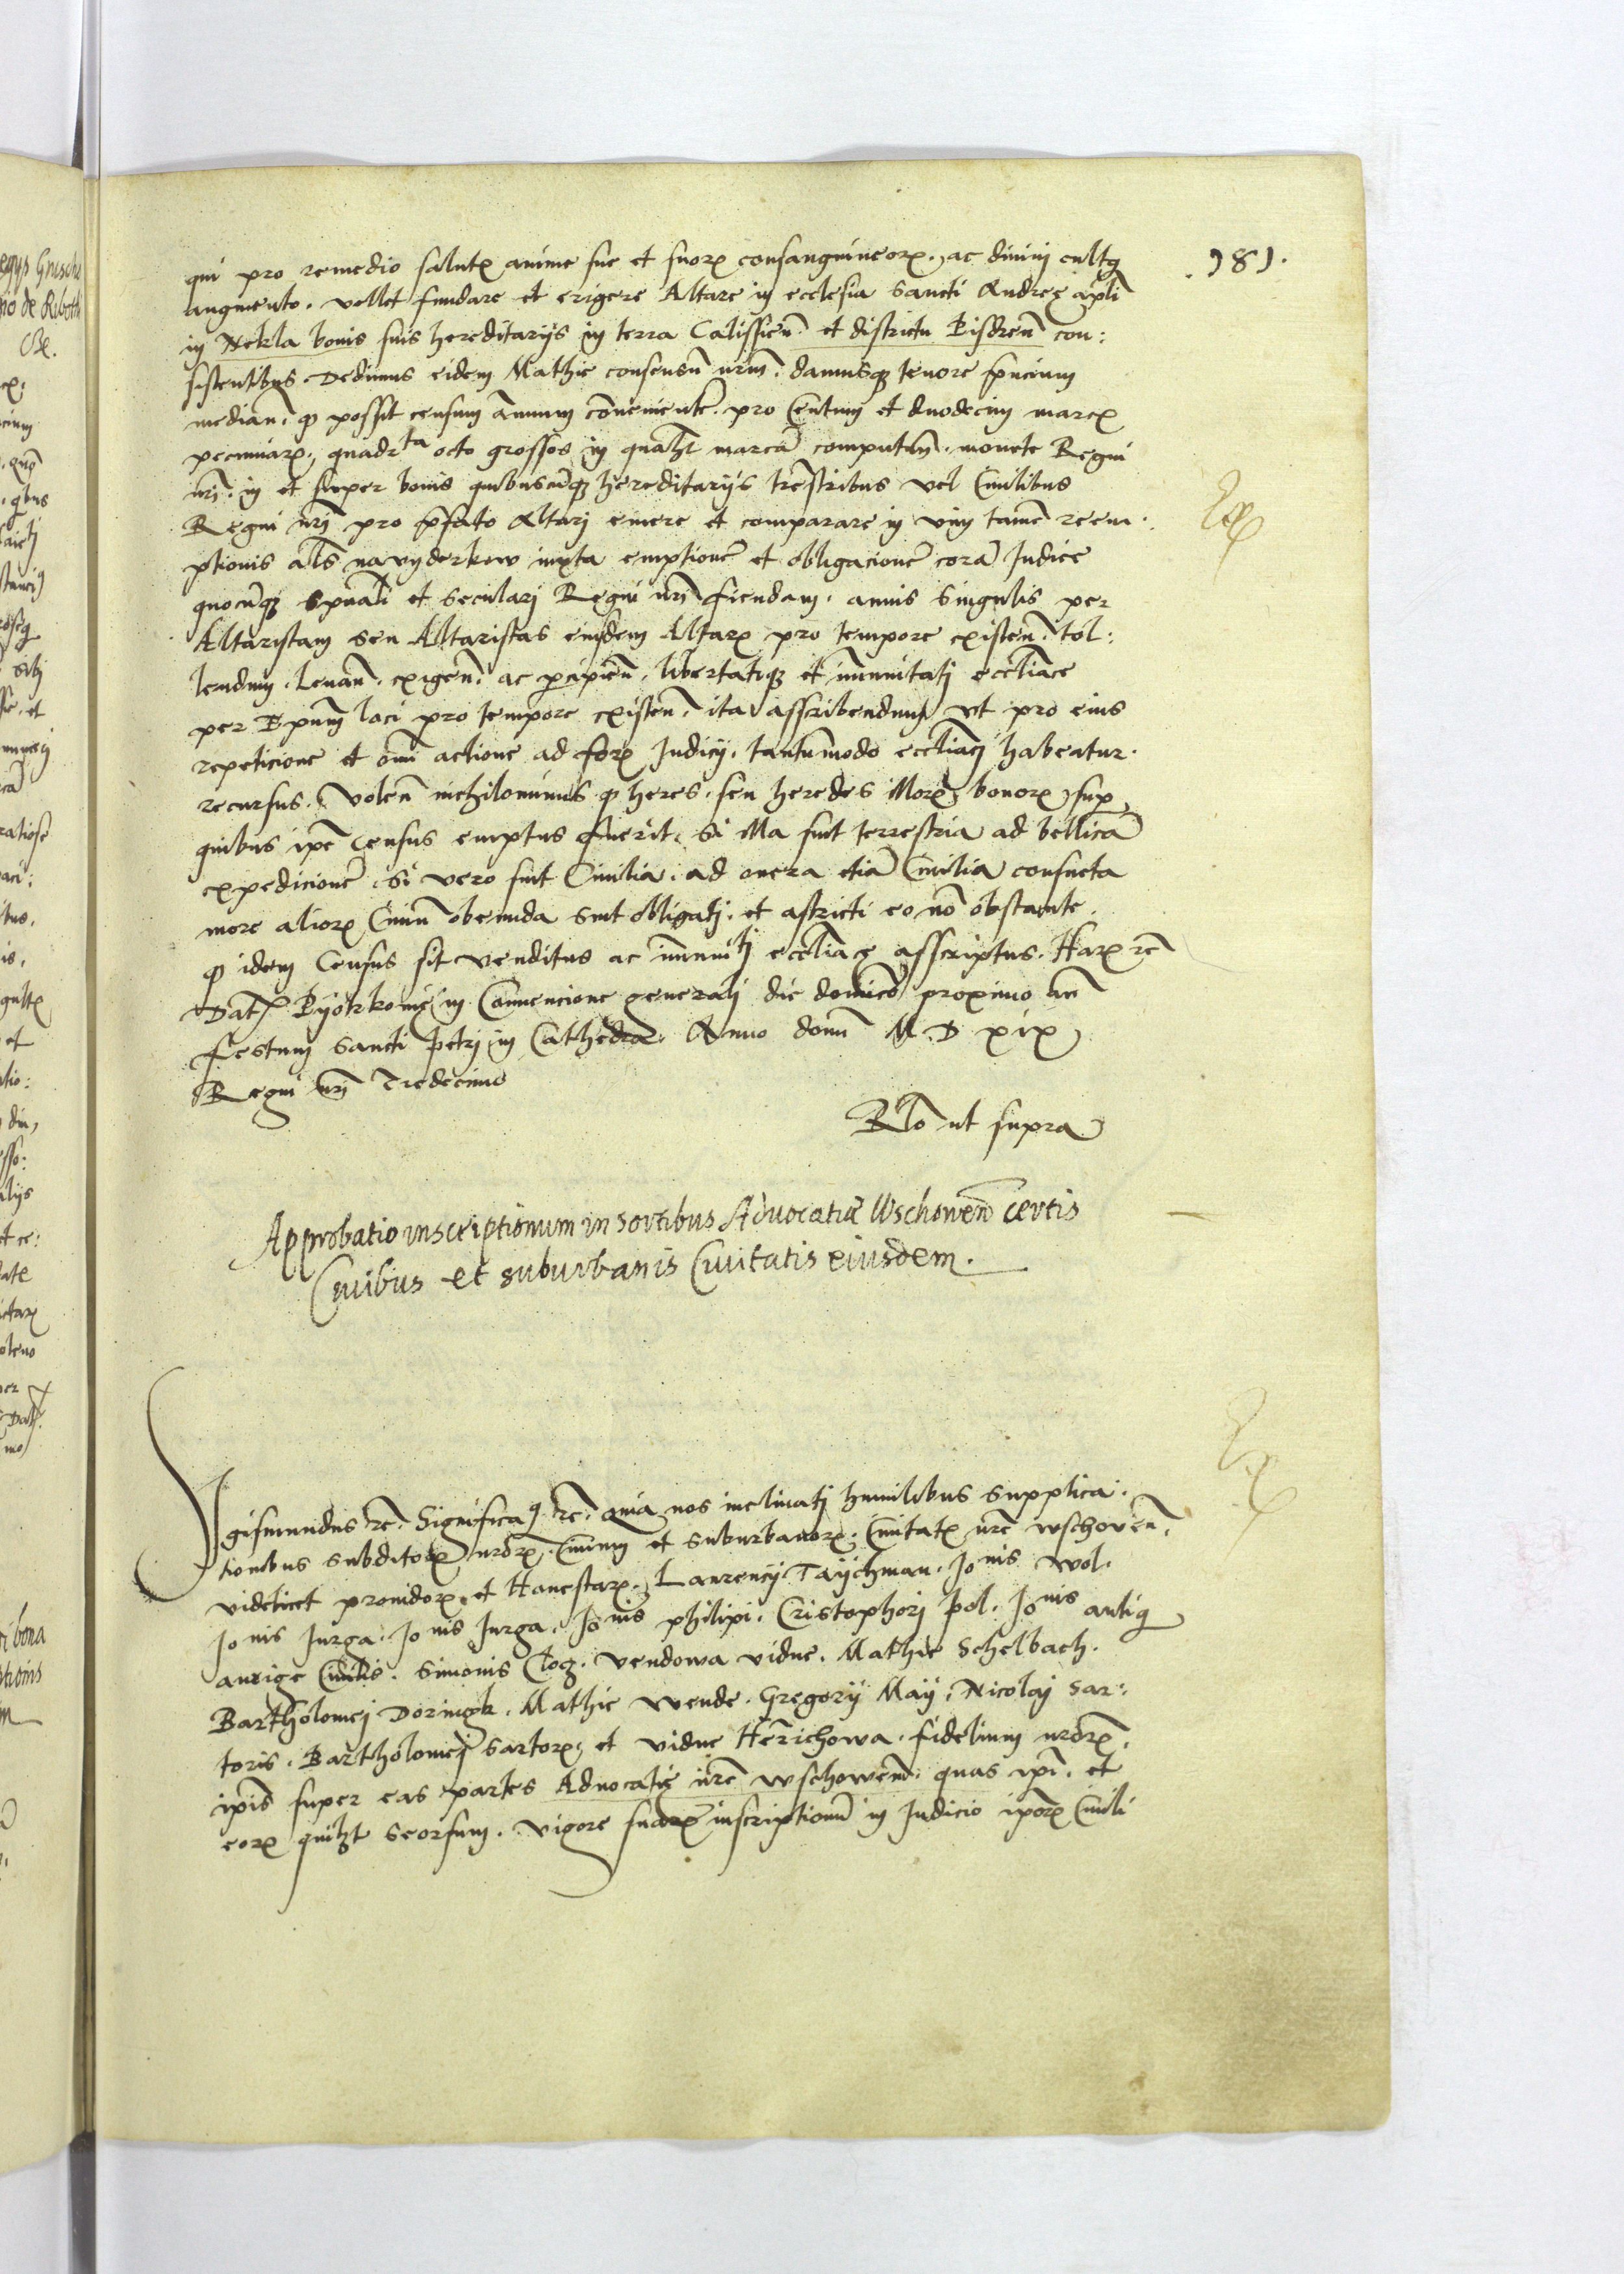 181.
qui pro remedio salutꝭ anime sue et suorꝝ consanguineorꝝ, ac divini cultꝰ
augmento. vellet fundare et erigere Altare in ecclesia Sancti Andreę apli̅
in Nekla bonis suis hereditarijs in terra Calissien̅. et districtu Pisdren̅ con:
sistentibus. Dedimus eidem Mathie consensu̅ nr̅m. damusqꝫ tenore pn̅cium
median̅. ꝙ possit censum a̅nuum co̅venienter̅. pro Centum et duodecim marcꝭ
pecuniarꝝ, quadrta octo grossos in qualꝫt marca̅ computan̅. monete Regni
nr̅i. in et super bonis quibuscu̅qꝫ hereditarijs tr̅estribus vel Civilibus
Regni nr̅i pro p̅fato Altarj emere et comparare in vim tame̅ reem:
ptionis al̅s navyderkow iuxta emptione̅ et obligacione̅ cora̅ Judice
quocu̅qꝫ Spu̅ali et Secularj Regni nr̅i fiendam. annis Singulis per
Altaristam Seu Altaristas eiusdem Altarꝭ pro tempore existen̅. tol:
lendum. Levan̅. exigen̅. ac p̲cipien̅. libertatiqꝫ et im̅unitatj eccl̅iace
per Ep̅um loci pro tempore existen̅. ita asscribendum, ut pro eius
repeticione et om̅i actione ad forꝝ Judicij. tantu̅modo eccl̅iaci habeatur
recursus. Volen̅ nichilominus ꝙ heres. seu heredes illorꝝ bonorꝝ sup̲
quibus ip̅e Census emptus fuerit. Si illa sint terrestria ad bellica̅
expedicione̅. Si vero sint Civilia. ad onera etia̅ Civilia consueta
more aliorꝝ Civiu̅ obeunda Sint obligatj. et astricti eo no̅ obstante.
ꝙ idem Census sit venditus ac im̅unitj eccl̅iacę asscriptus. Harꝝ rc̅
Datꝭ Pijotrkowię in Convencione generalj die dominico proximo an̅
festum Sancti Petrj in Cathedra. Anno domi̅ M. D xix
Regni nr̅i Tredecimo
Rl̅o ut supra
Approbatio inscriptionum in sortibus Advocatiæ Wschowen̅ certis
Civibus et suburbanis Civitatis eiusdem.
Sigismundus rc̅. Significaꝰ rc̅. Quia nos inclinatj humilibus supplica:
tionibus subditorꝝ nr̅orꝝ, Civium et suburbanorꝝ, Civitatꝭ nr̅e wschoven̅.
videlicet providorꝝ, et Honestarꝝ. Laurencij Taychman. Jonis wol.
Jonis Jurga. Jonis Jurga. Jonis philipi. Cristophorj Pol. Jonis antiq
aurige Civilis. Simonis Clog. Vendowa vidue. Mathie Schelbach.
Bartholomej Doringk. Mathie wende. Gregorij May. Nicolaj Sar:
toris. Bartholomej Sartorꝭ, et vidue He̅richowa. fidelium nr̅orꝝ.
ip̅is super eas partes Advocatię nr̅e wschowen̅. quas ip̅i. et
eorꝝ quilꝫt Seorsum. vigore suarꝝ inscriptionu̅ in Judicio ip̅orꝝ Civili